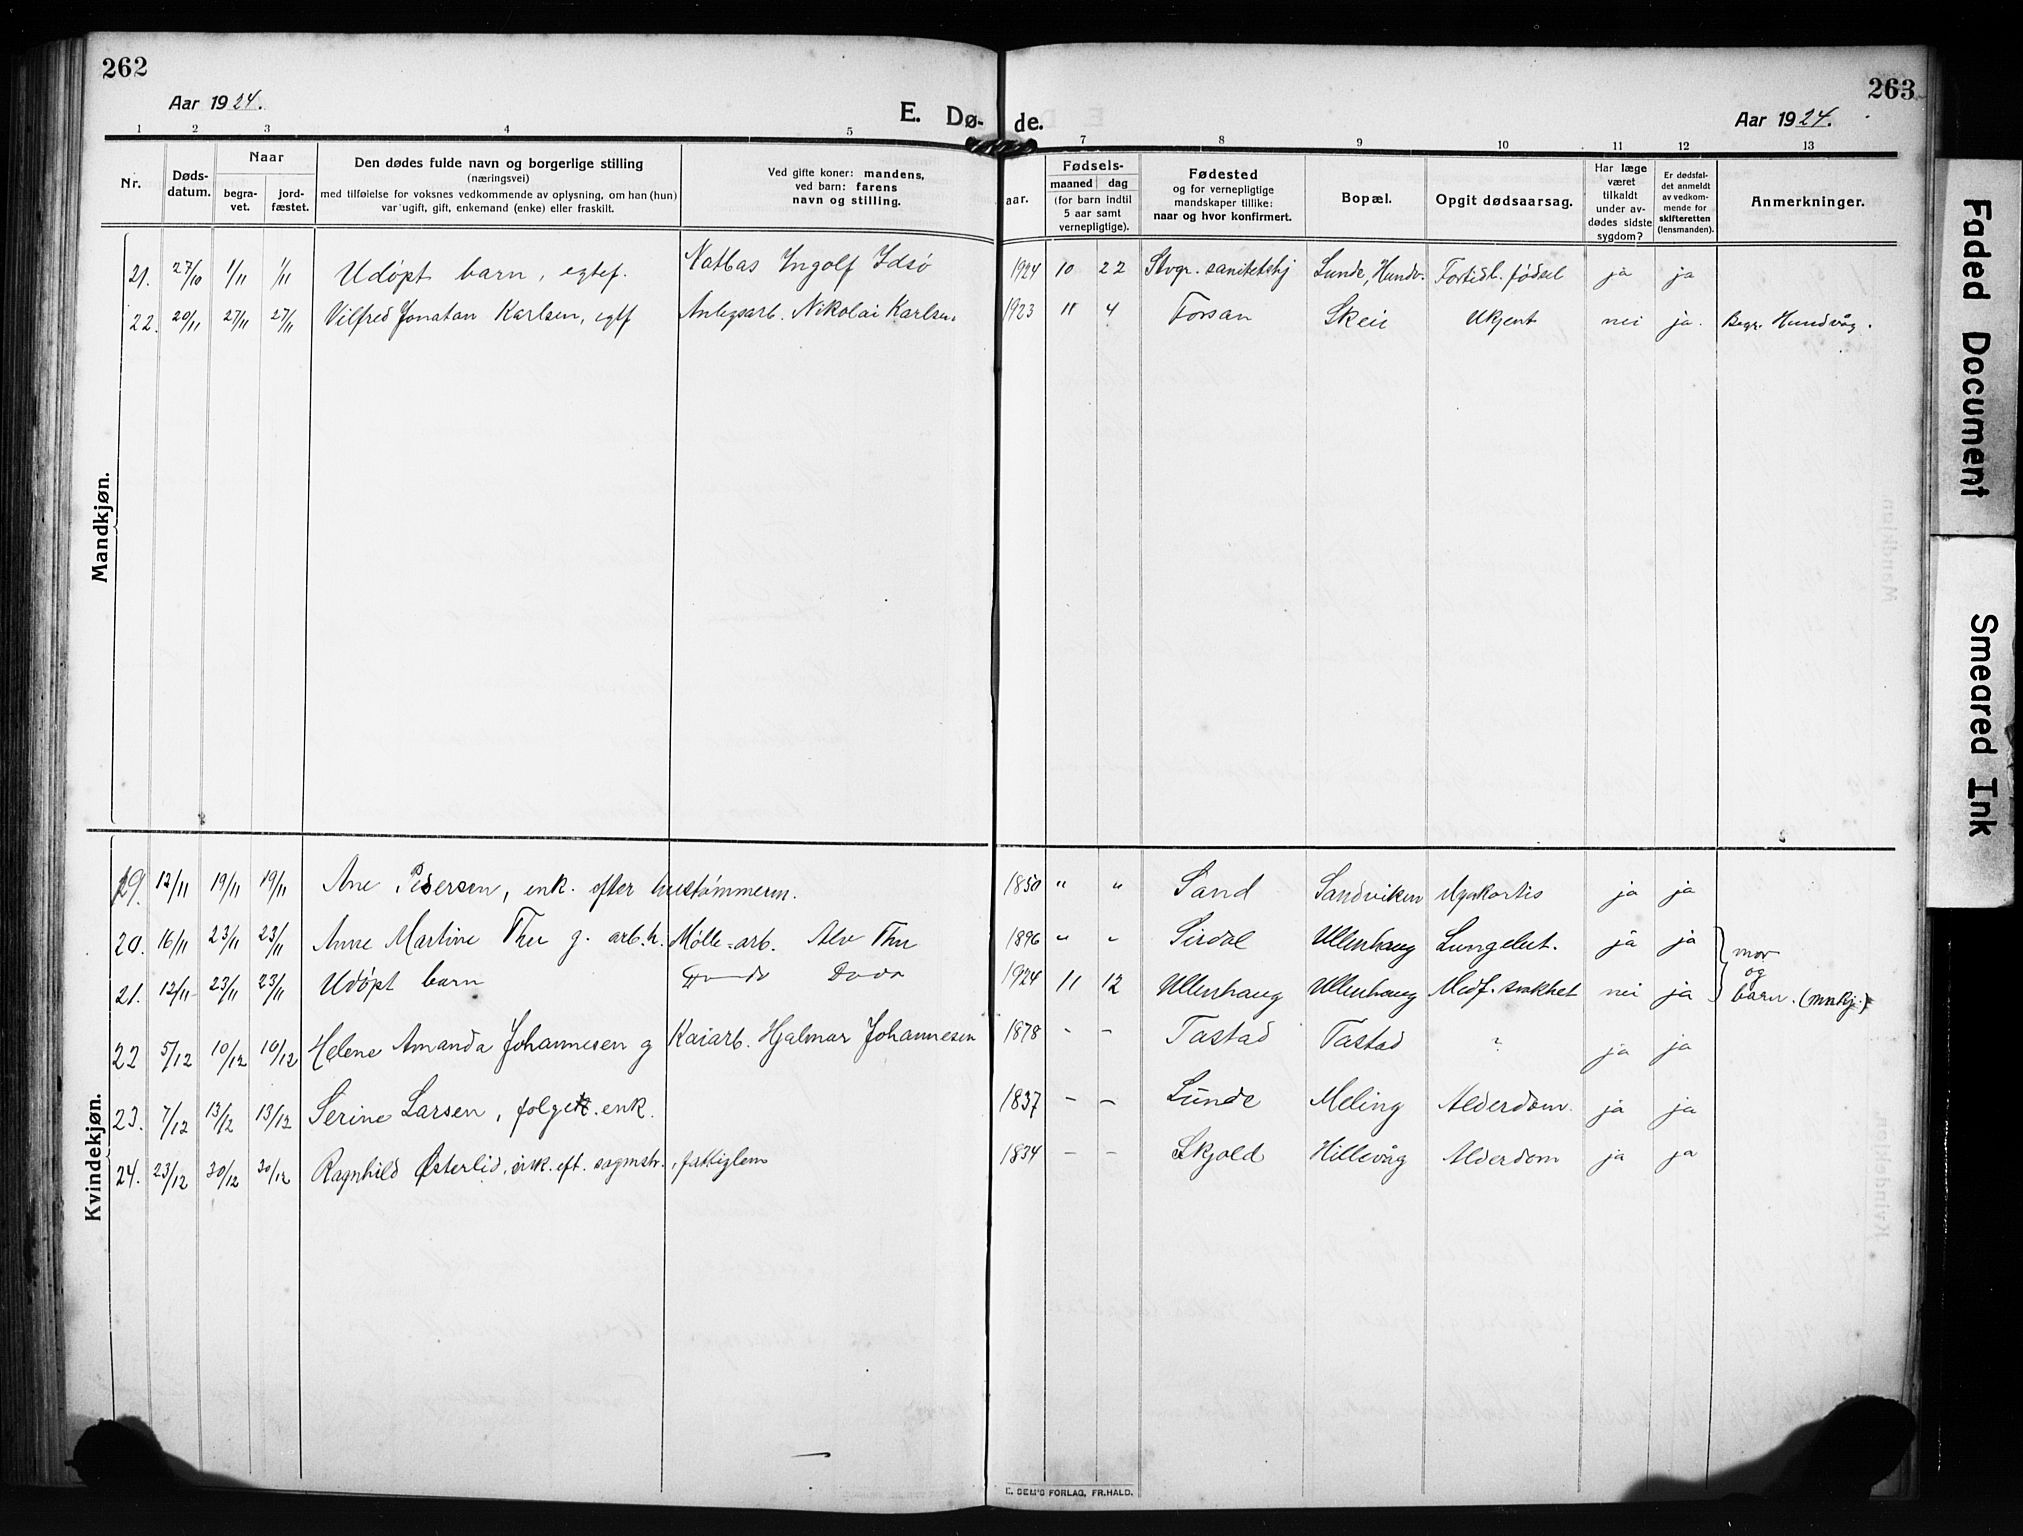 262
263
Aar 1924.
E. Dø-
de.
Aar 1924.
1 2 3 4 5 7 8 9 10 11 12 13
Nr.
Døds-
datum.
Naar
begra-
vet.
jord-
fæstet.
Den dødes fulde navn og borgerlige stilling
(næringsvei)
med tilføielse for voksnes vedkommende av oplysning, om han (hun)
var ugift, gift, enkemand (enke) eller fraskilt.
Ved gifte koner: mandens,
ved barn: farens
navn og stilling.
aar.
Fødsels-
maaned dag
(for barn indtil
5 aar samt
vernepligtige).
Fødested
og for vernepligtige
mandskaper tillike:
naar og hvor konfirmert.
Bopæl.
Opgit dødsaarsag.
Har læge
været
tilkaldt
under av-
dødes sidste
sygdom?
Er dødsfal-
det anmeldt
av vedkom-
mende for
skifteretten
(lensmanden).
Anmerkninger.
Mandkjøn.
21. 27/10 1/11 1/11 Udøpt barn, egtef. Ingolf Idsø 1924 10 22 Stvgr. sanitetshj Lunde, Hundv. Fortidl. fødsel ja ja
22. 20/11 27/11 27/11 Vilfred Jonatan Karlsen, egtf Anlegsarb. Nikolai Karlsen. 1923 11 4 Forsan Skeie Ukjent nei ja. Begr. Hundvåg.
Kvindekjøn.
19. 12/11 19/11 19/11 Ane Pedersen, enk. efter hustømmerm. 1850 " " Sand Sandviken Myokartis ja ja
20. 16/11 23/11 23/11 Anne Martine Thu g. arb.h. Mølle-arb. Alv Thu 1896 " " Sirdal Ullenhaug Lungebet. ja ja
mor
og
21. 12/11 23/11 23/11 Udøpt barn 1924 11 12 Ullenhaug Ullenhaug Medf. svakhet nei ja barn. (mnkj.)
22 5/12 10/12 10/12 Helene Amanda Johannesen g Kaiarb. Hjalmar Johannesen 1878 - - Tastad Tastad ? ja ja
23. 7/12 13/12 13/12 Serine Larsen, folgek. enk. 1837 - - Lunde Meling Alderdom. ja ja
24. 23/12 30/12 30/12 Ragnhild Østerlid, enk. eft. sagmstr., fattiglem 1834 - - Skjold Hillevåg Alderdom ja ja
E. SEM'S FORLAG, FR.HALD.
Faded Document
Smeared Ink